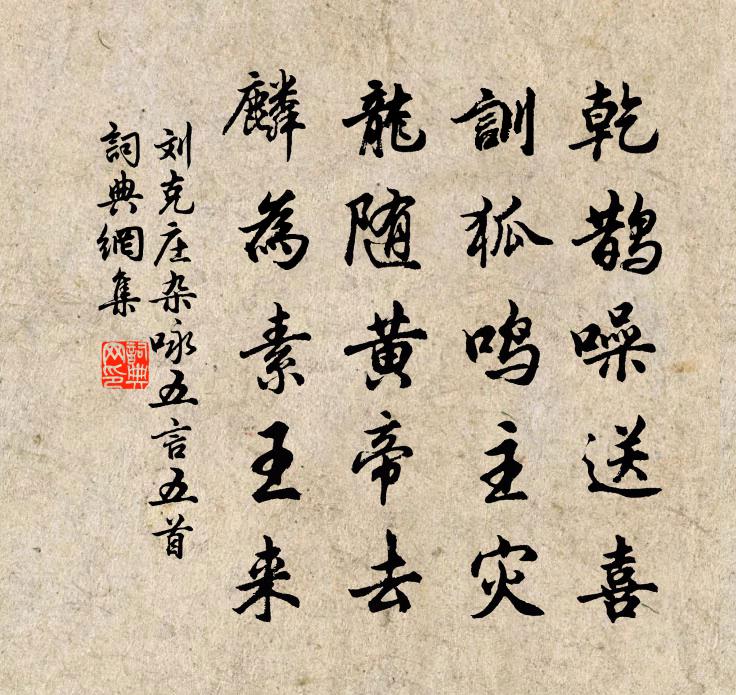 乾鹊噪送喜
訓狐鸣主灾
龍随黄帝去
麟為素王来
刘克庄杂咏五言五首
詞典網集
詞典网印